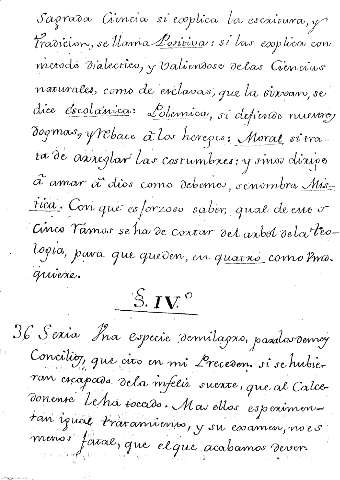 Sagrada Ciencia si explica la escritura, y
tradicion, se llama Positiva: si las explica con
metodo dialectico, y valiendose de las Ciencias
naturales, como de esclavas, que la sirvan, se
dice Escolastica: Polemica, si defiende nuestros
dogmas, y rebate â los hereges: Moral si tra-
ta de arreglar las costumbres: y sinos dirige
â amar â dios como debemos, se nombra Mis-
tica. Con que es forzoso saber, qual de estos
Cinco ramos se ha de cortar del arbol de la teo-
logia, para que queden, en quatro como
quiere.
§. IV.º
36 Seria Una especie de milagro, para los demas
Concilios, que cito en mi Preceden. si se hubie-
ran escapado de la infeliz suerte, que al Calce-
donense le ha tocado. Mas ellos esperimen-
tan igual tratamiento, y su examen, no es
menos fatal, que el que acabamos de ver